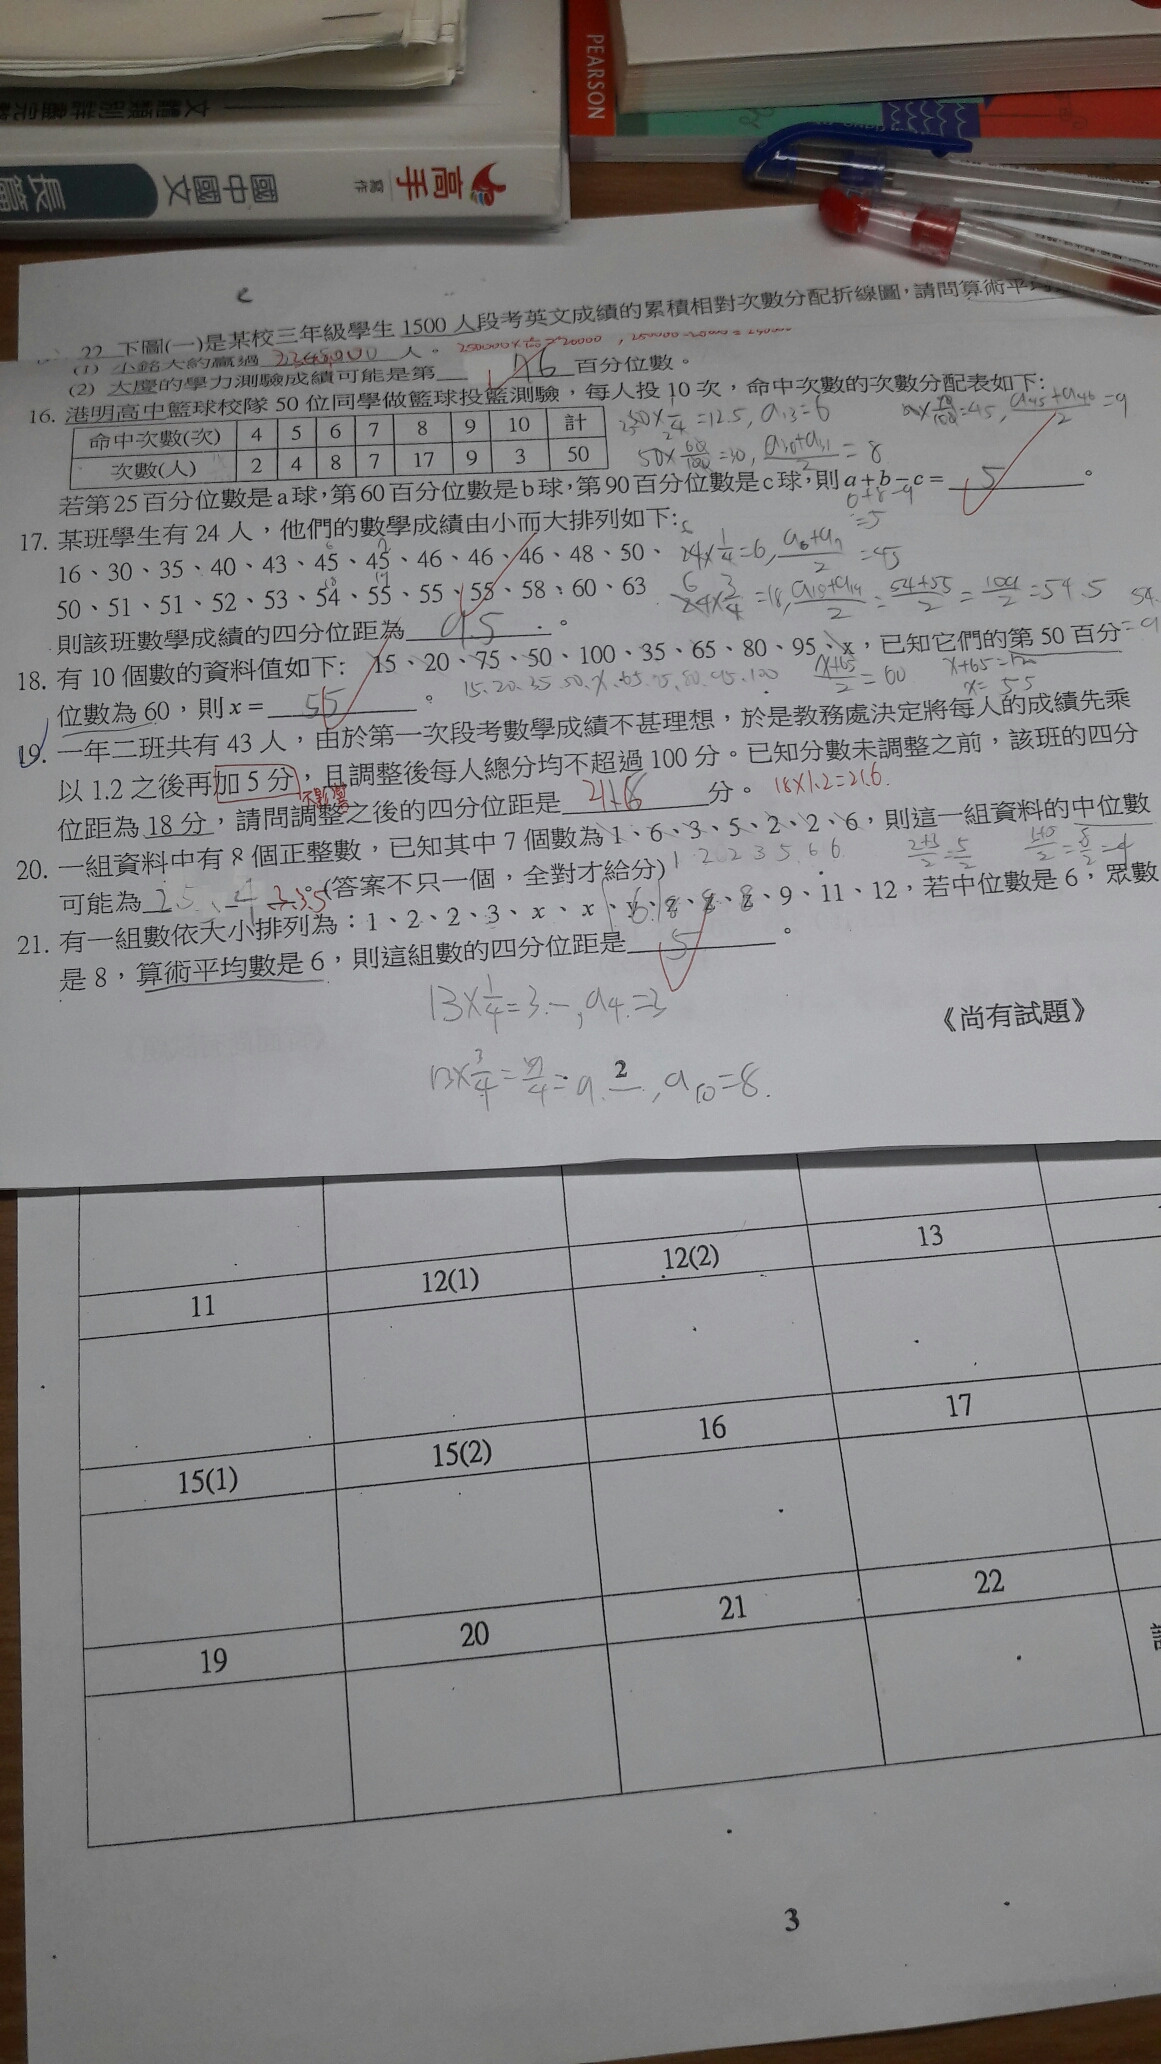 PEARSON
高手
寫作
國中國文
長篇
22. 下圖(一)是某校三年級學生 1500 人段考英文成績的累積相對次數分配折線圖，請問算術平均
(1) 小銘大約贏過 人。
(2) 大慶的學力測驗成績可能是第 96 百分位數。
16. 港明高中籃球校隊 50 位同學做籃球投籃測驗，每人投 10 次，命中次數的次數分配表如下：
命中次數(次) 4 5 6 7 8 9 10 計
次數(人) 2 4 8 7 17 9 3 50
50×1/4=12.5, a13=6
50×60/100=30, (a30+a31)/2=8
(a45+a46)/2=9
若第 25 百分位數是 a 球，第 60 百分位數是 b 球，第 90 百分位數是 c 球，則 a＋b－c＝ 5 。
6+8-9
=5
17. 某班學生有 24 人，他們的數學成績由小而大排列如下：
16、30、35、40、43、45、45、46、46、46、48、50、
24×1/4=6, (a6+a7)/2=45
50、51、51、52、53、54、55、55、55、58、60、63
24×3/4=18, (a18+a19)/2=(54+55)/2=109/2=54.5
則該班數學成績的四分位距為 9.5 。
18. 有 10 個數的資料值如下： 15、20、75、50、100、35、65、80、95、x，已知它們的第 50 百分
位數為 60，則 x＝ 55 。
15.20.35.50.x.65.75.80.95.100
(x+65)/2=60
x+65=120
x=55
19. 一年二班共有 43 人，由於第一次段考數學成績不甚理想，於是教務處決定將每人的成績先乘
以 1.2 之後再加 5 分，且調整後每人總分均不超過 100 分。已知分數未調整之前，該班的四分
不影響
位距為 18 分，請問調整之後的四分位距是 21.6 分。
18×1.2=21.6.
20. 一組資料中有 8 個正整數，已知其中 7 個數為 1、6、3、5、2、2、6，則這一組資料的中位數
1 2 2 3 5 6 6
(2+3)/2=5/2
可能為 2.5、4 3.3.5 。(答案不只一個，全對才給分)
21. 有一組數依大小排列為：1、2、2、3、x、x、y、8、8、8、9、11、12，若中位數是 6，眾數
是 8，算術平均數是 6，則這組數的四分位距是 5 。
13×1/4=3.—, a4=3
a10=8.
《尚有試題》
2
11 12(1) 12(2) 13
15(1) 15(2) 16 17
19 20 21 22
3